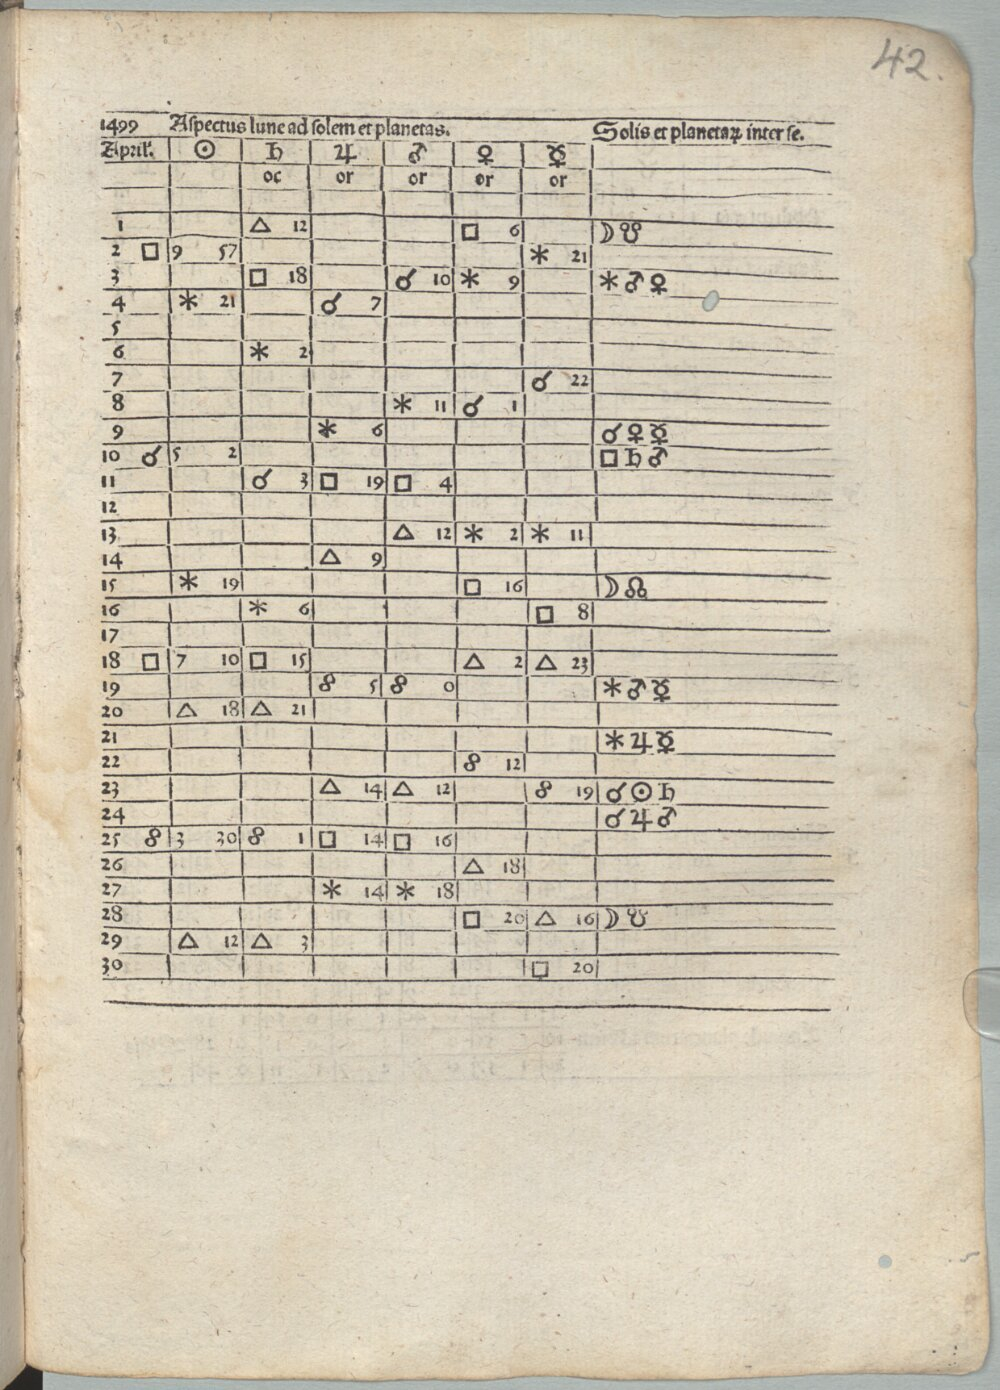 42.
1499 Aspectus lune ad solem et planetas. Solis et planetaꝝ inter se.
April. ☉ ♄ ♃ ♂ ♀ ☿
oc or or or or
1 △ 12 □ 6 ☽ ☋
2 □ 9 57 ⚹ 21
3 □ 18 ☌ 10 ⚹ 9 ⚹ ♂ ♀
4 ⚹ 21 ☌ 7
5
6 ⚹ 2
7 ☌ 22
8 ⚹ 11 ☌ 1
9 ⚹ 6 ☌ ♀ ☿
10 ☌ 5 2 □ ♄ ♂
11 ☌ 3 □ 19 □ 4
12
13 △ 12 ⚹ 2 ⚹ 11
14 △ 9
15 ⚹ 19 □ 16 ☽ ☊
16 ⚹ 6 □ 8
17
18 □ 7 10 □ 15 △ 2 △ 23
19 ☍ 5 ☍ 0 ⚹ ♂ ☿
20 △ 18 △ 21
21 ⚹ ♃ ☿
22 ☍ 12
23 △ 14 △ 12 ☍ 19 ☌ ☉ ♄
24 ☌ ♃ ♂
25 ☍ 3 30 ☍ 1 □ 14 □ 16
26 △ 18
27 ⚹ 14 ⚹ 18
28 □ 20 △ 16 ☽ ☋
29 △ 12 △ 3
30 □ 20